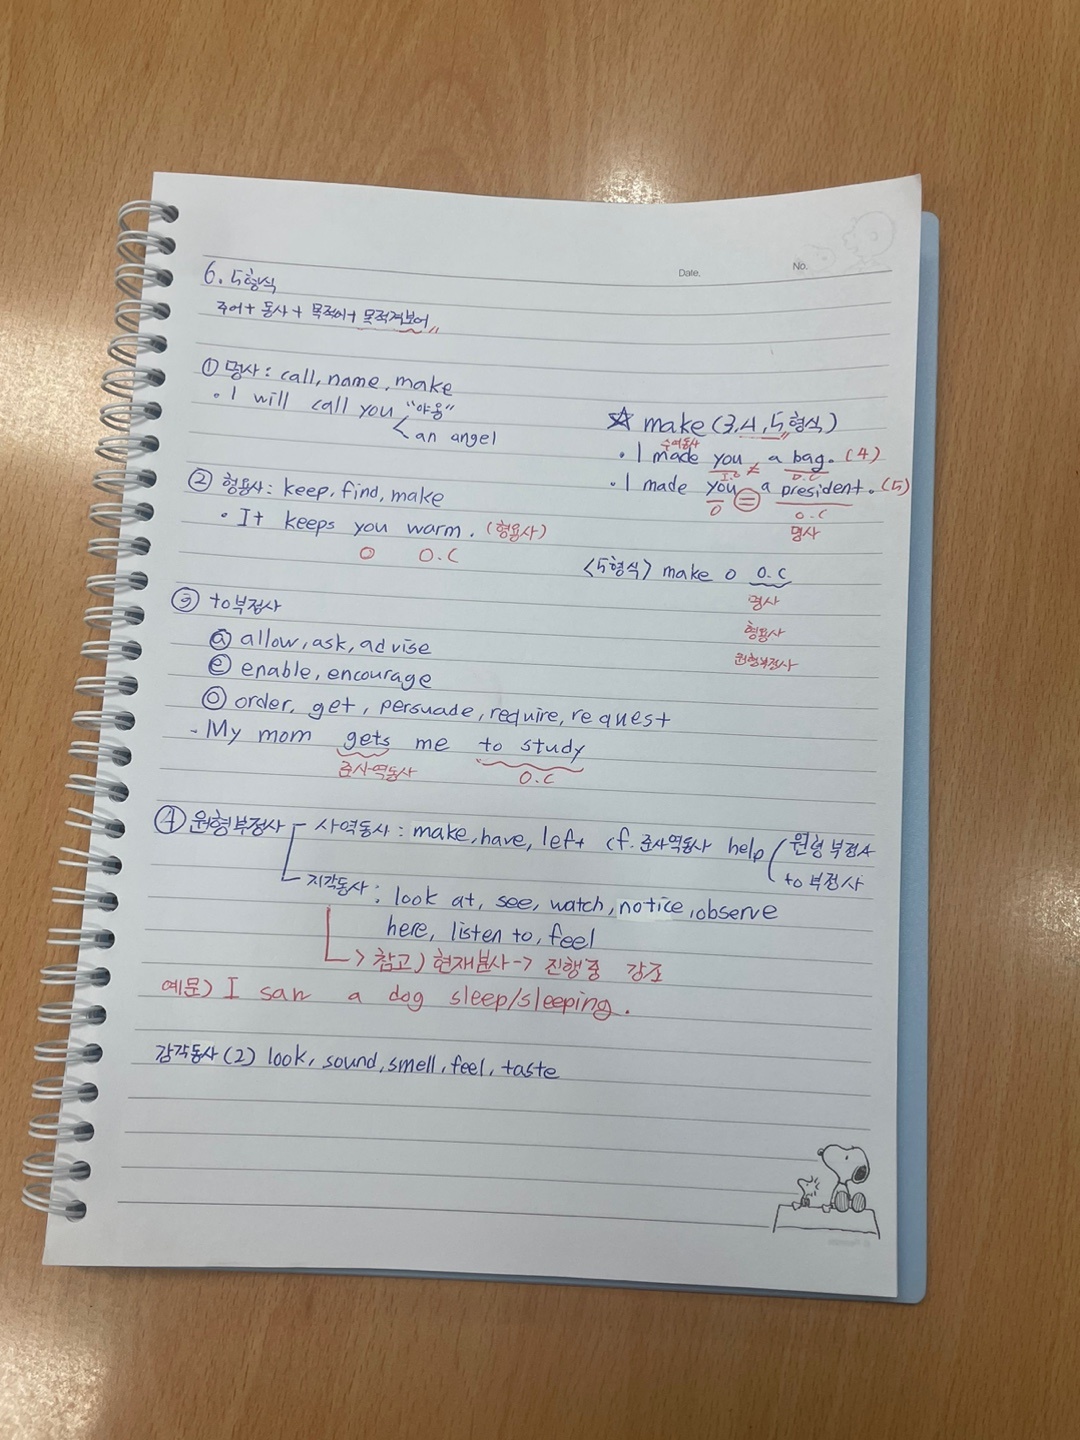 Date.
No.
6. 5형식
주어 + 동사 + 목적어 + 목적격보어
① 명사 : call, name, make
· I will call you "야옹"
an angel
☆ make (3, 4, 5 형식)
수여동사
· I made you ≠ a bag. (4)
I.O D.C
· I made you = a president. (5)
O O.C
명사
② 형용사 : keep, find, make
· It keeps you warm. (형용사)
O O.C
<5형식> make O O.C
명사
형용사
원형부정사
③ to부정사
ⓐ allow, ask, advise
ⓔ enable, encourage
ⓞ order, get, persuade, require, request
- My mom gets me to study
준사역동사 O.C
④ 원형부정사 - 사역동사 : make, have, left cf. 준사역동사 help ( 원형부정사
to 부정사
지각동사 : look at, see, watch, notice, observe
here, listen to, feel
-> 참고) 현재분사 -> 진행중 강조
예문) I san a dog sleep/sleeping.
감각동사 (2) look, sound, smell, feel, taste